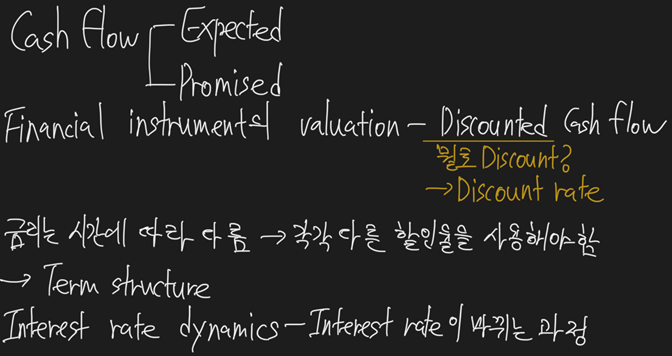 Cash flow - Expected
- Promised
Financial instrument의 valuation - Discounted Cash flow
뭘로 Discount?
→ Discount rate
금리는 시간에 따라 다름 → 각각 다른 할인율을 사용해야함
→ Term structure
Interest rate dynamics - Interest rate이 바뀌는 과정